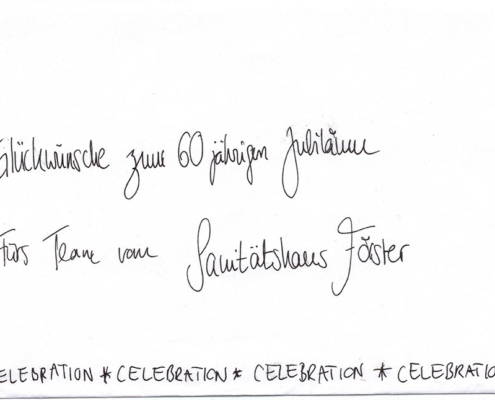 Glückwünsche zum 60 jährigen Jubiläum
Fürs Team vom Sanitätshaus Förster
CELEBRATION * CELEBRATION * CELEBRATION * CELEBRATIO